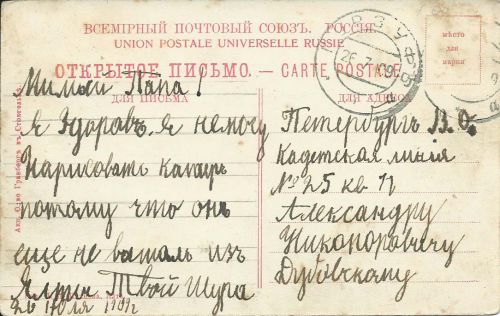 ВСЕМІРНЫЙ ПОЧТОВЫЙ СОЮЗЪ. РОССІЯ.
UNION POSTALE UNIVERSELLE RUSSIE
ОТКРЫТОЕ ПИСЬМО. — CARTE POSTALE
мѣсто
для
марки
26.7.09
ДЛЯ ПИСЬМА
Милый Папа!
я здоровъ. я немогу
нарисовать катеръ
потому что онъ
еще не
изъ
Ялты Твой Шура
26 Юля 1909г
ДЛЯ АДРЕСА
Петербургъ В.О.
Кадетская линія
№ 25 кв 11
Александру
Никопоровичу
Дубовскому
Акц. Общ. Гранбергъ въ Стокгольмѣ